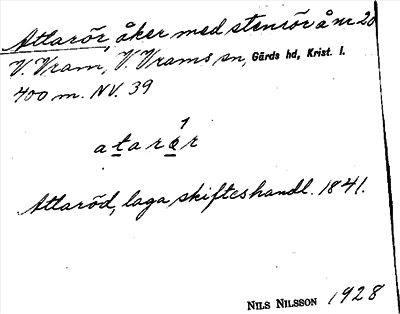 Attarör, åker med stenrör å nr 20
V. Vram, V. Vrams sn, Gärds hd, Krist. l.
700 m. NV. 39
atarèr
Attaröd, laga skifteshandl. 1841.
NILS NILSSON 1928